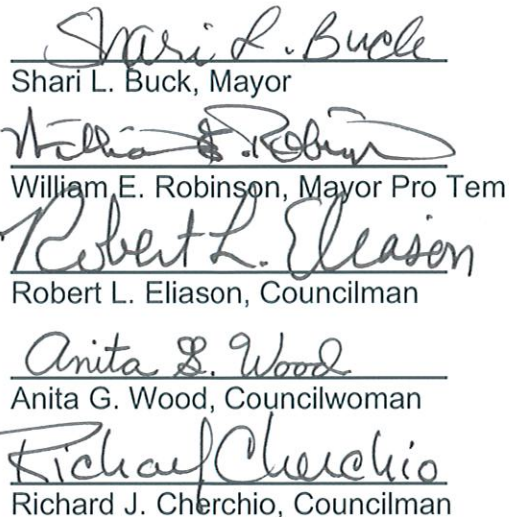 Shari L. Buck
Shari L. Buck, Mayor
William E. Robinson
William E. Robinson, Mayor Pro Tem
Robert L. Eliason
Robert L. Eliason, Councilman
Anita G. Wood
Anita G. Wood, Councilwoman
Richard J Cherchio
Richard J. Cherchio, Councilman